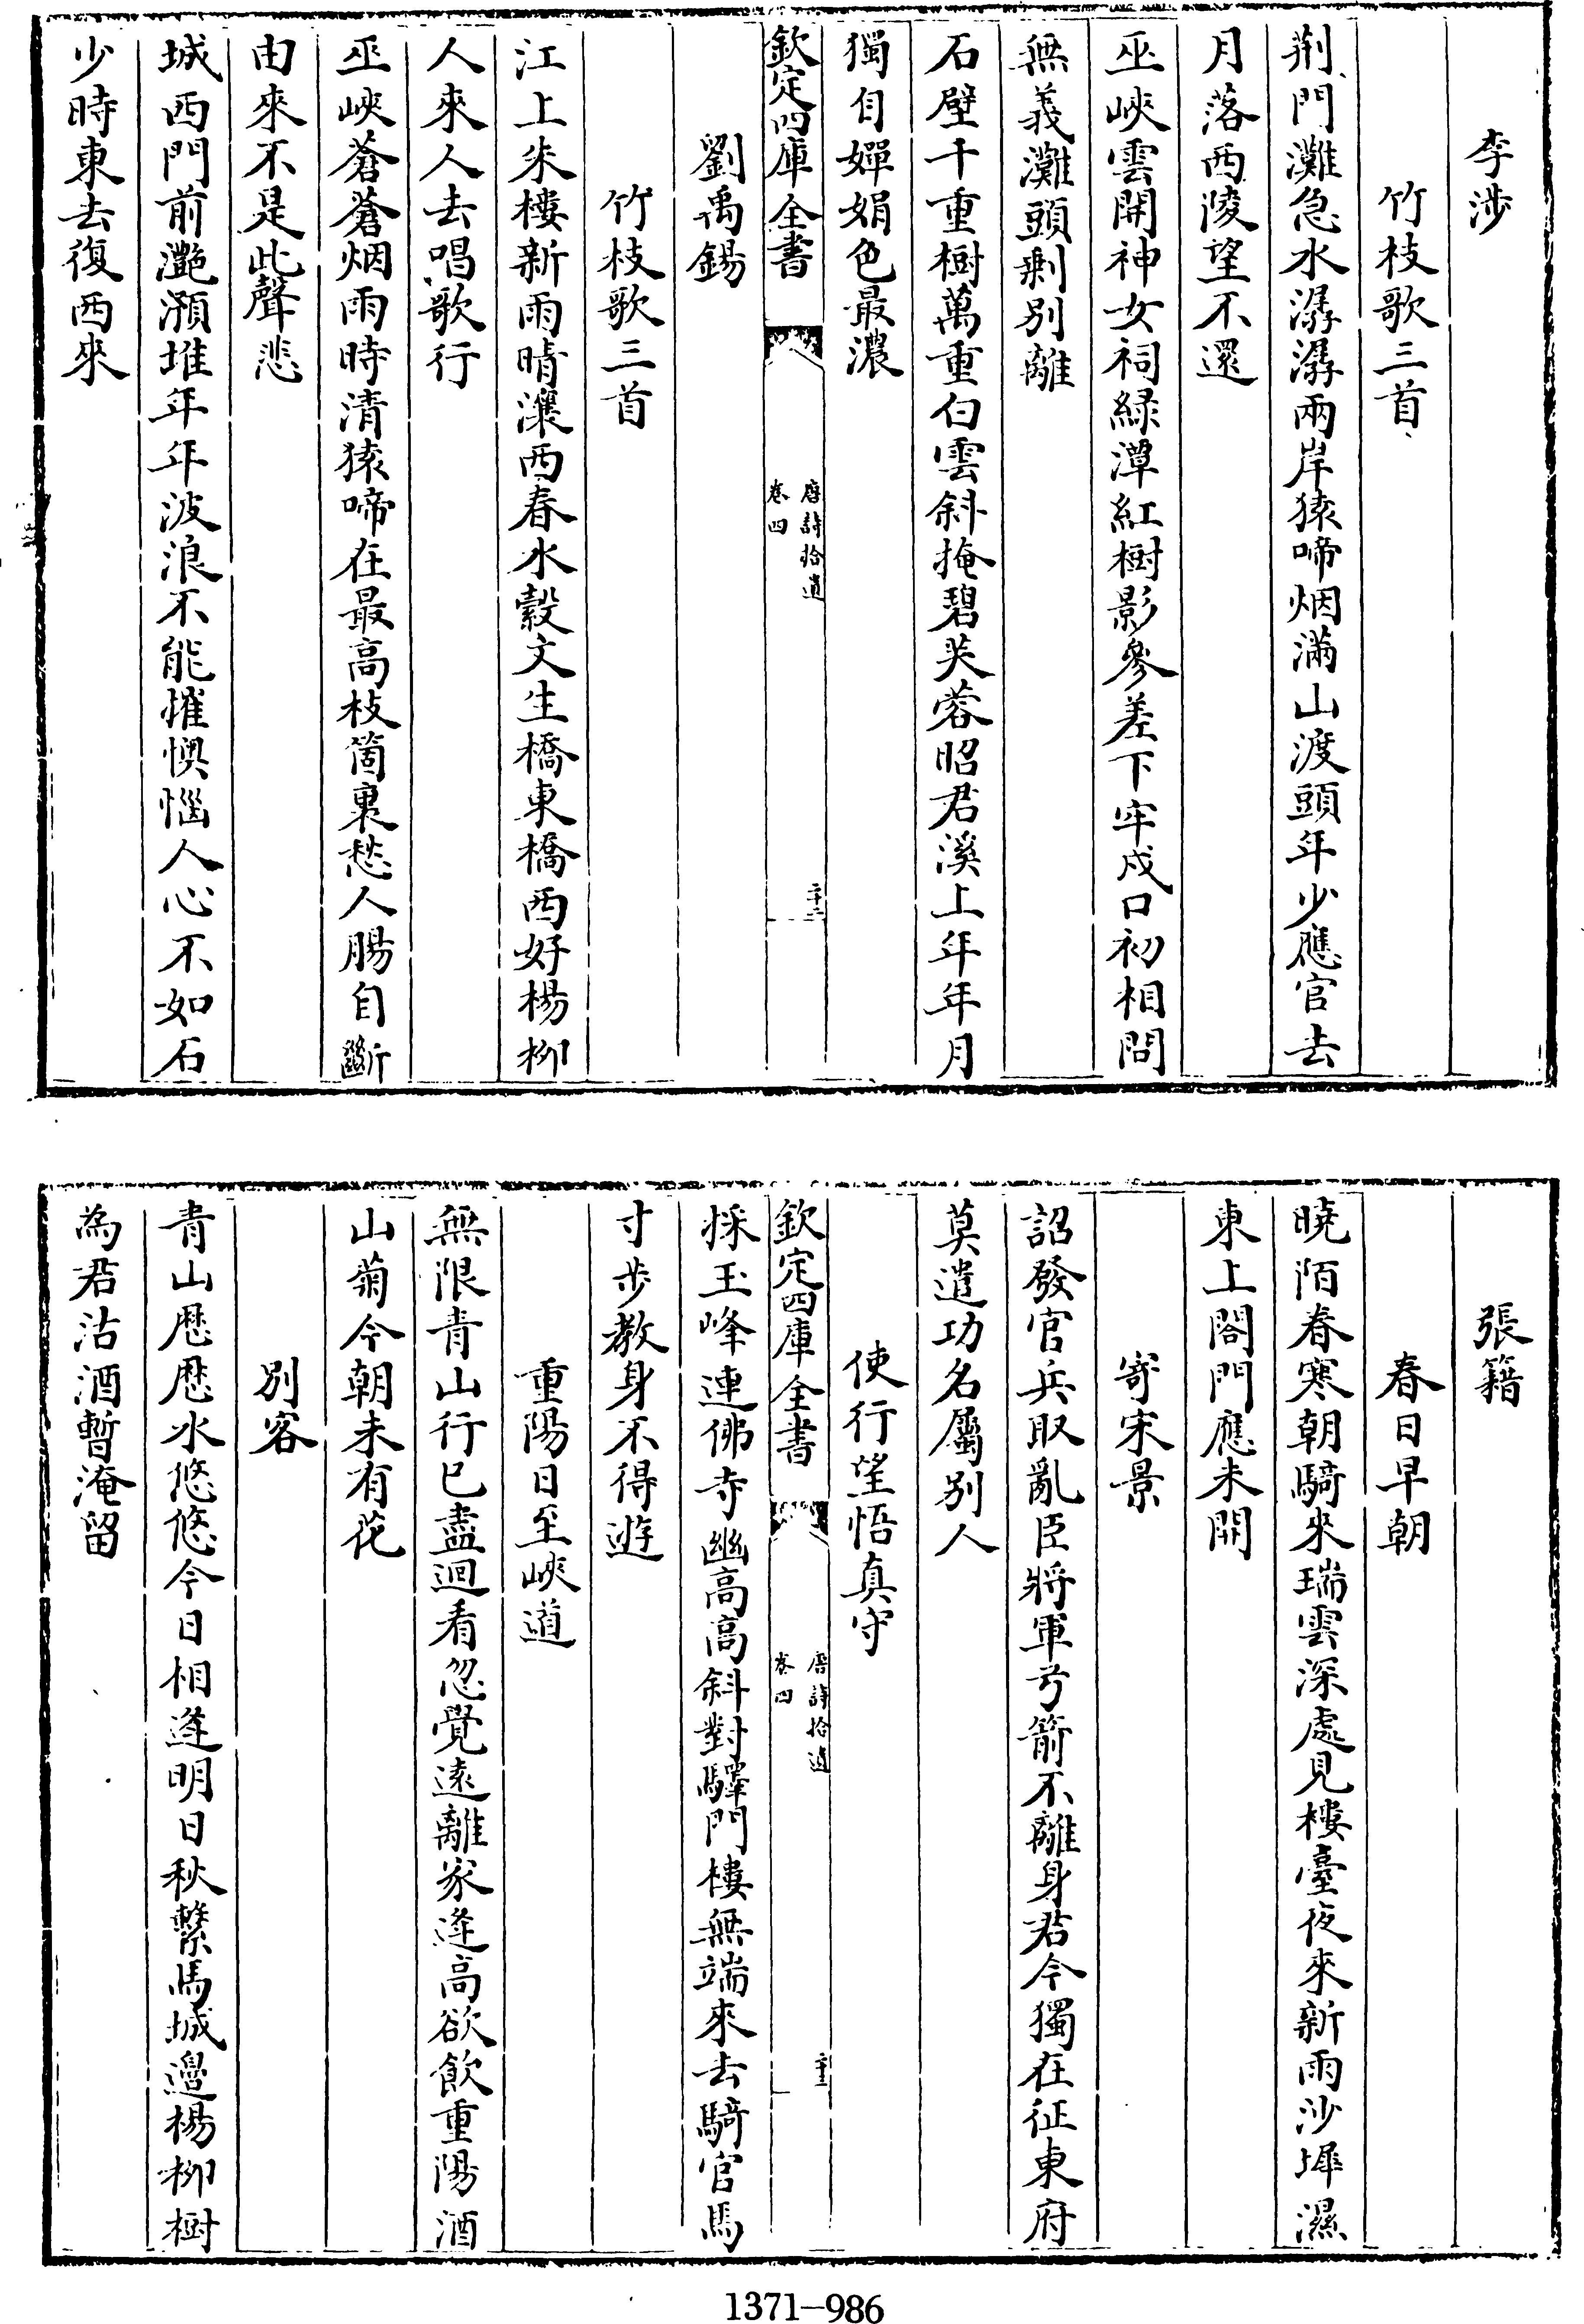 李涉
竹枝歌三首
荆門灘急水潺潺兩岸猿啼烟滿山渡頭年少應官去
月落西陵望不還
巫峽雲開神女祠緑潭紅樹影參差下牢戍口初相問
無義灘頭剩别離
石壁千重樹萬重白雲斜掩碧芙蓉昭君溪上年年月
獨自嬋娟色最濃
欽定四庫全書
唐詩拾遺
卷四
二十二
劉禹錫
竹枝歌三首
江上朱樓新雨晴瀼西春水縠文生橋東橋西好楊柳
人來人去唱歌行
巫峽蒼蒼烟雨時清猿啼在最高枝箇裏愁人腸自斷
由來不是此聲悲
城西門前灔澦堆年年波浪不能摧懊惱人心不如石
少時東去復西來
張籍
春日早朝
曉陌春寒朝騎來瑞雲深處見樓臺夜來新雨沙堤濕
東上閤門應未開
寄宋景
詔發官兵取亂臣將軍弓箭不離身君今獨在征東府
莫遣功名屬别人
使行望悟真寺
欽定四庫全書
唐詩拾遺
卷四
採玉峰連佛寺幽高高斜對驛門樓無端來去騎官馬
寸步教身不得遊
重陽日至峽道
無限青山行已盡迴看忽覺遠離家逢高欲飲重陽酒
山菊今朝未有花
别客
青山歷歷水悠悠今日相逢明日秋繫馬城邉楊柳樹
為君沽酒暫淹留
1371-986